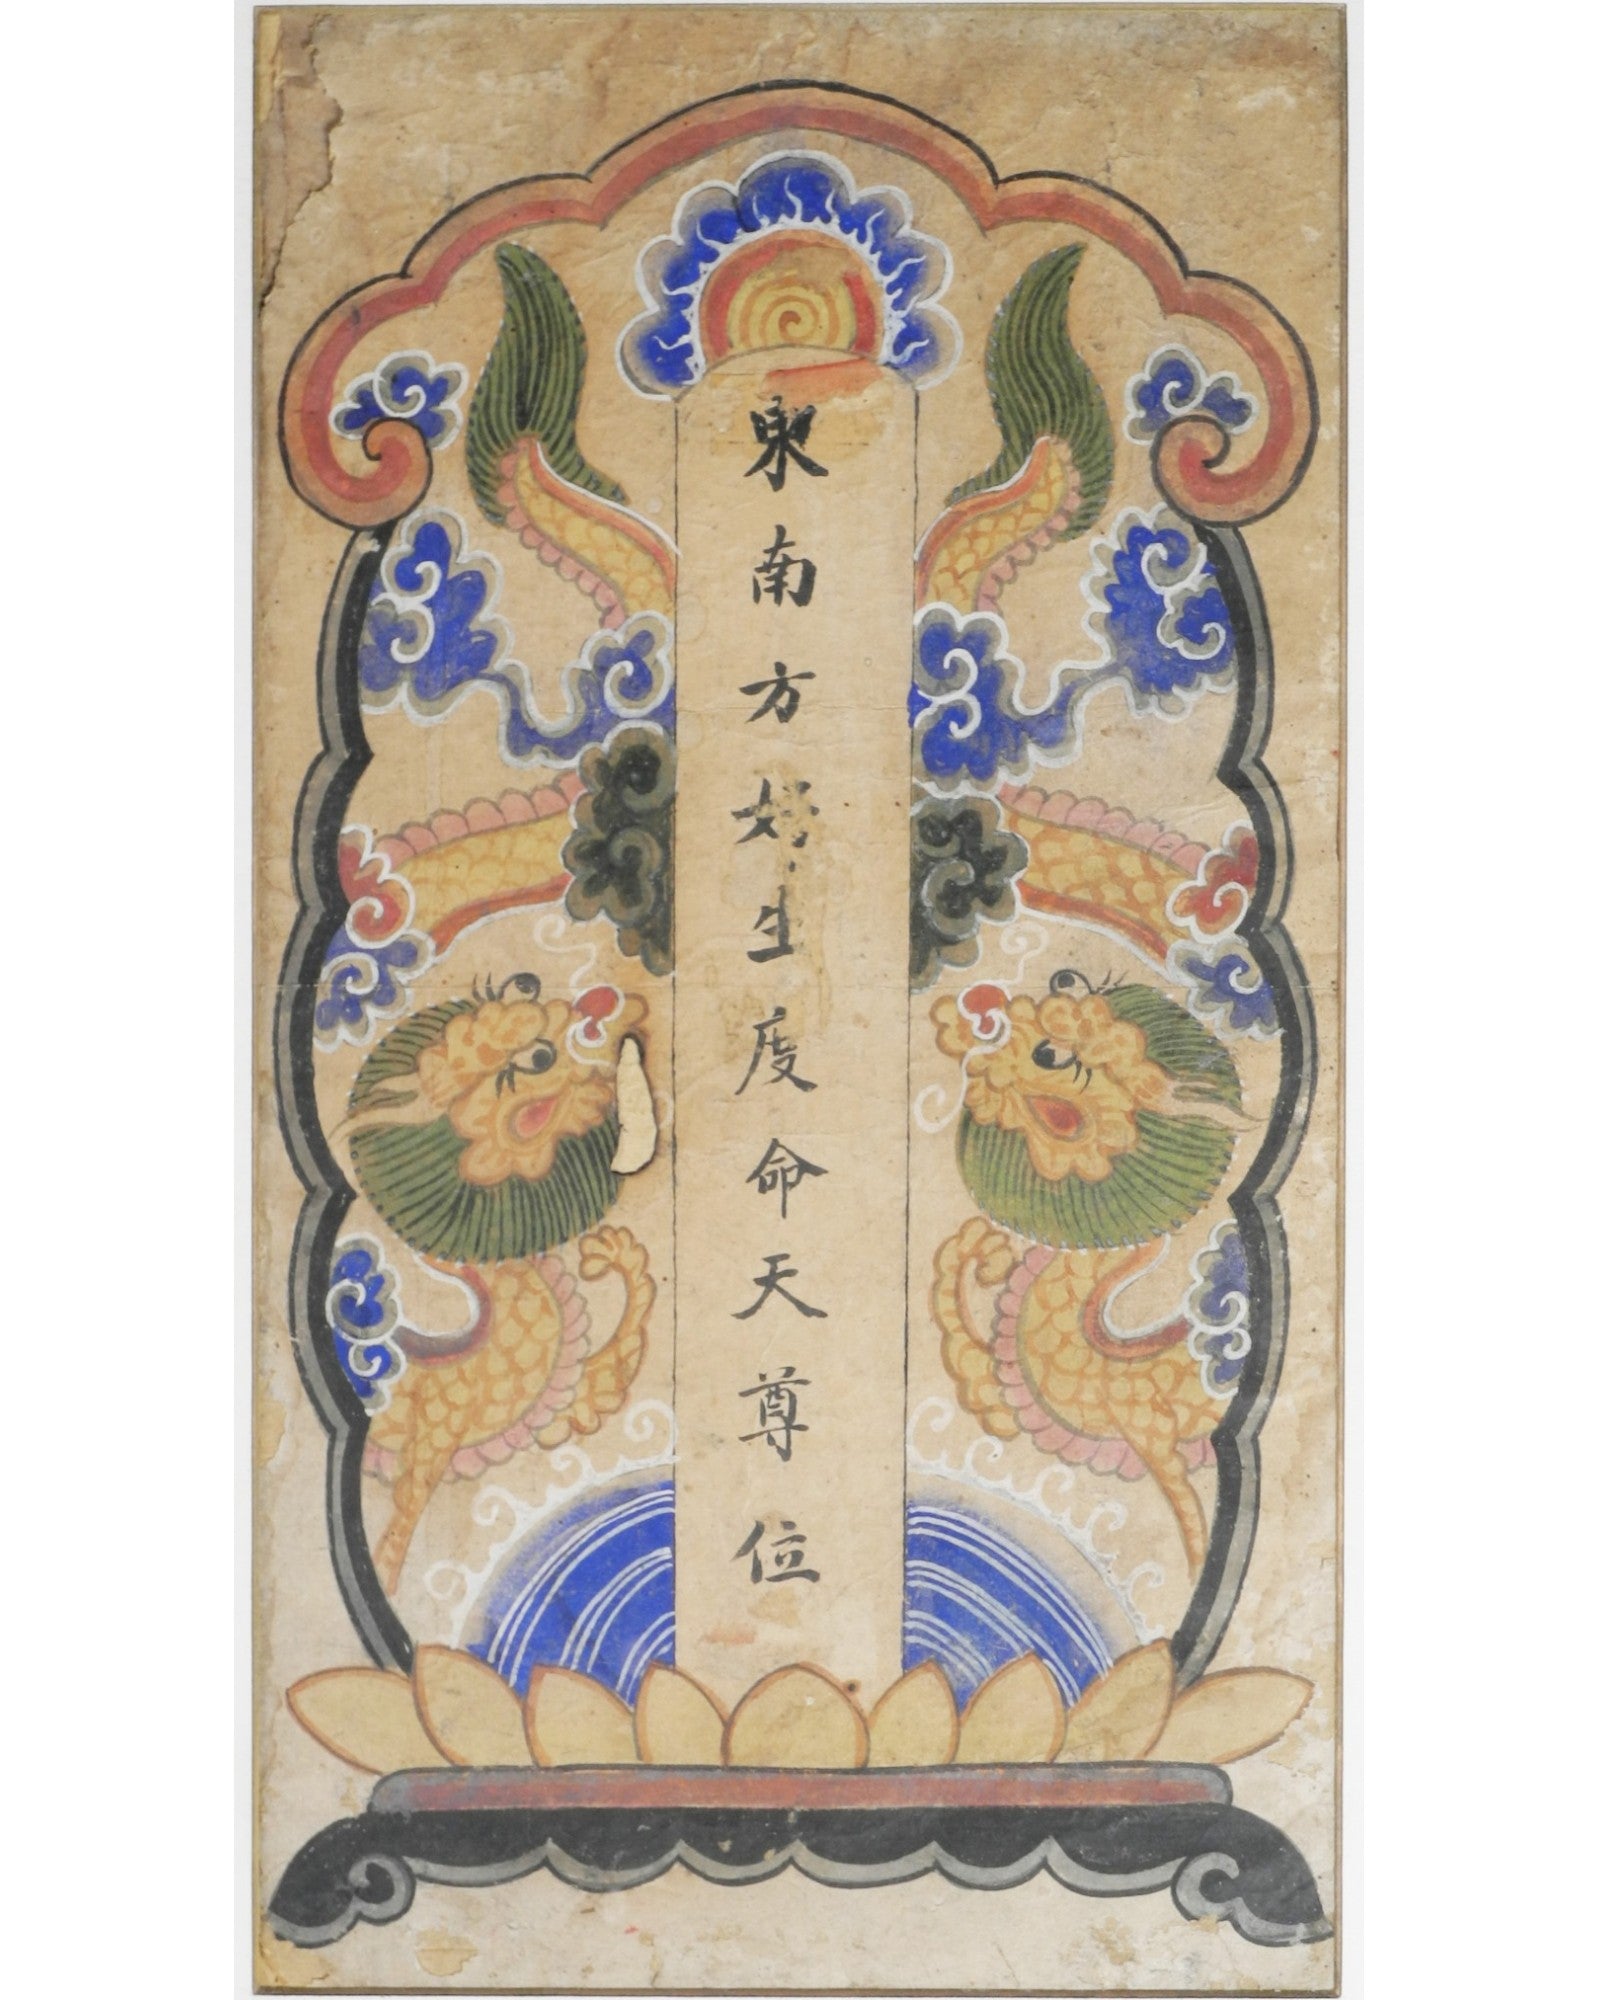 東南方好生度命天尊位